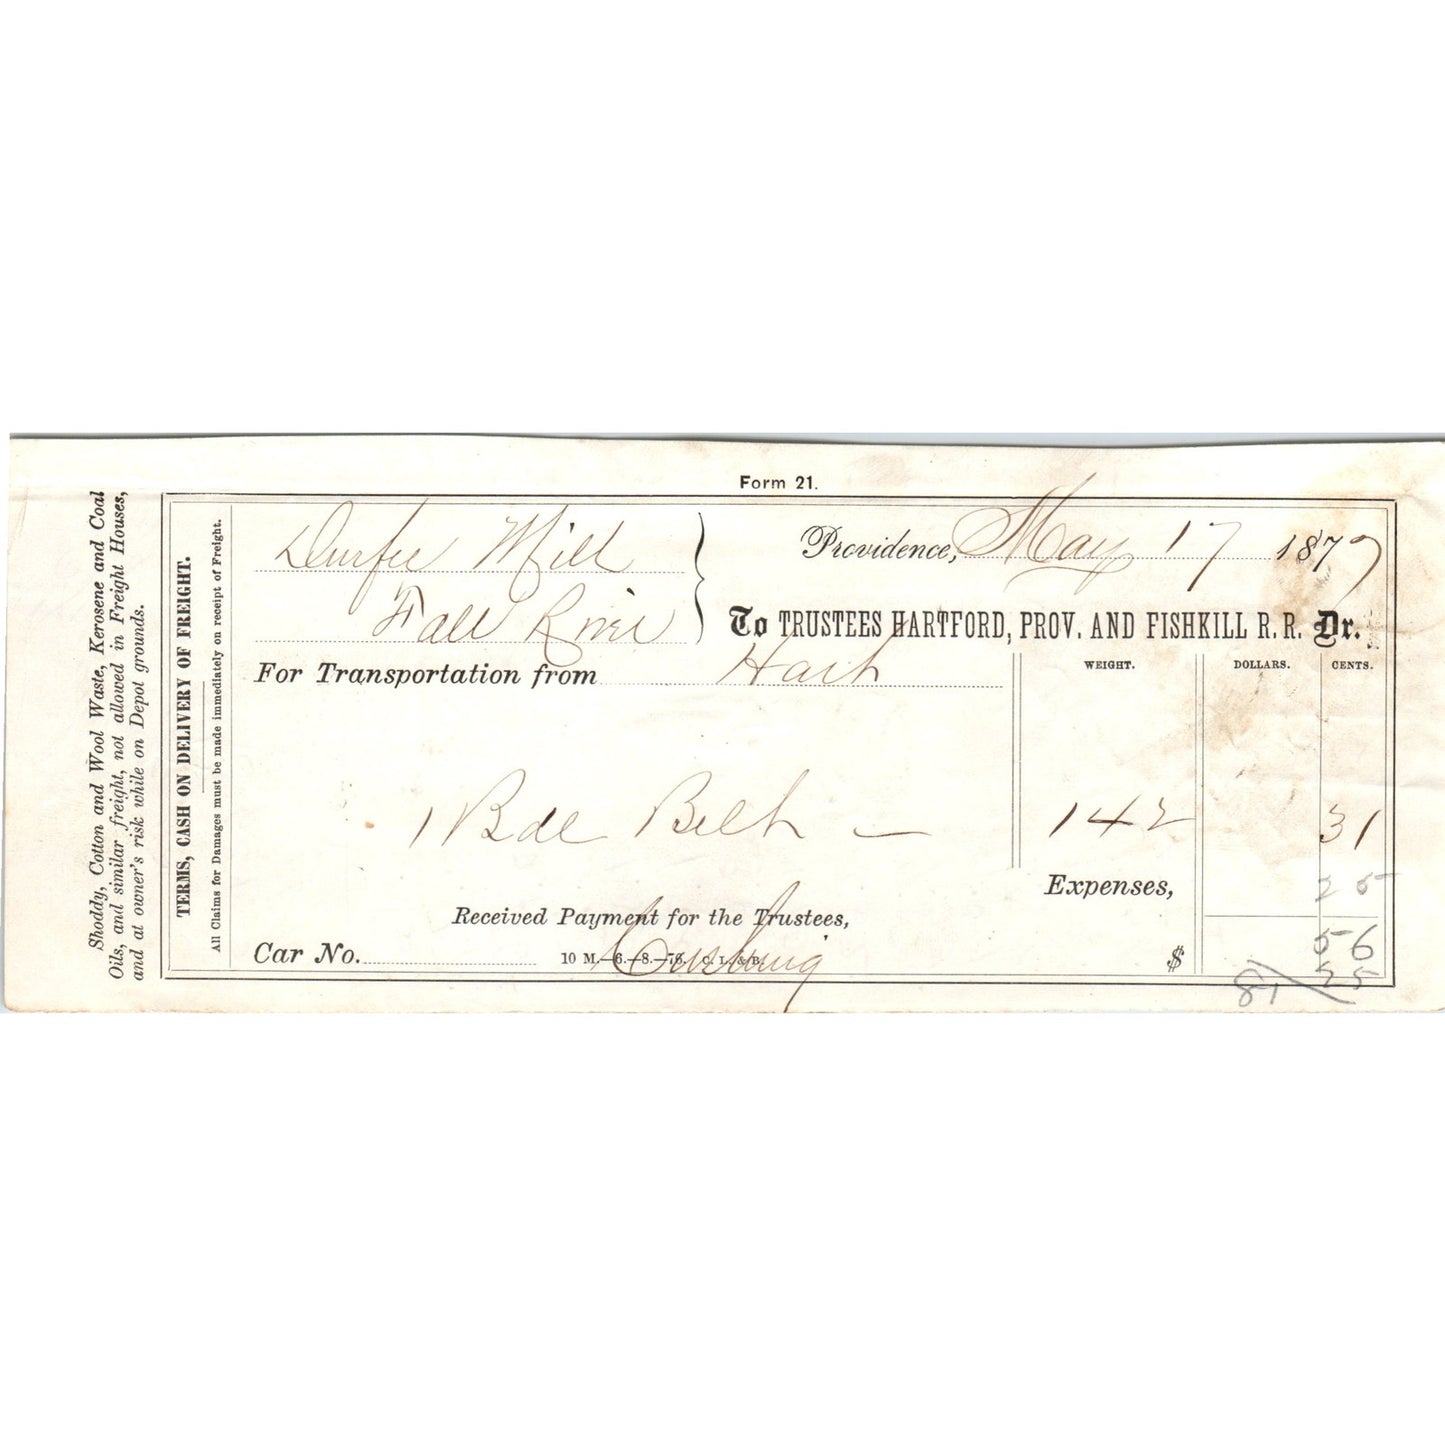 Form 21.
Shoddy, Cotton and Wool Waste, Kerosene and Coal
Oils, and similar freight, not allowed in Freight Houses,
and at owner's risk while on Depot grounds.
TERMS, CASH ON DELIVERY OF FREIGHT.
All Claims for Damages must be made immediately on receipt of Freight.
Durfee Mill
Fall River
Providence, May 17 1877
To TRUSTEES HARTFORD, PROV. AND FISHKILL R. R. Dr.
For Transportation from Hart
WEIGHT. DOLLARS. CENTS.
1 Bdl Belt — 142 31
Expenses, 25
Received Payment for the Trustees,
Car No. 10 M.—6.—8.—76. C. L. & B. $ 56
81 25